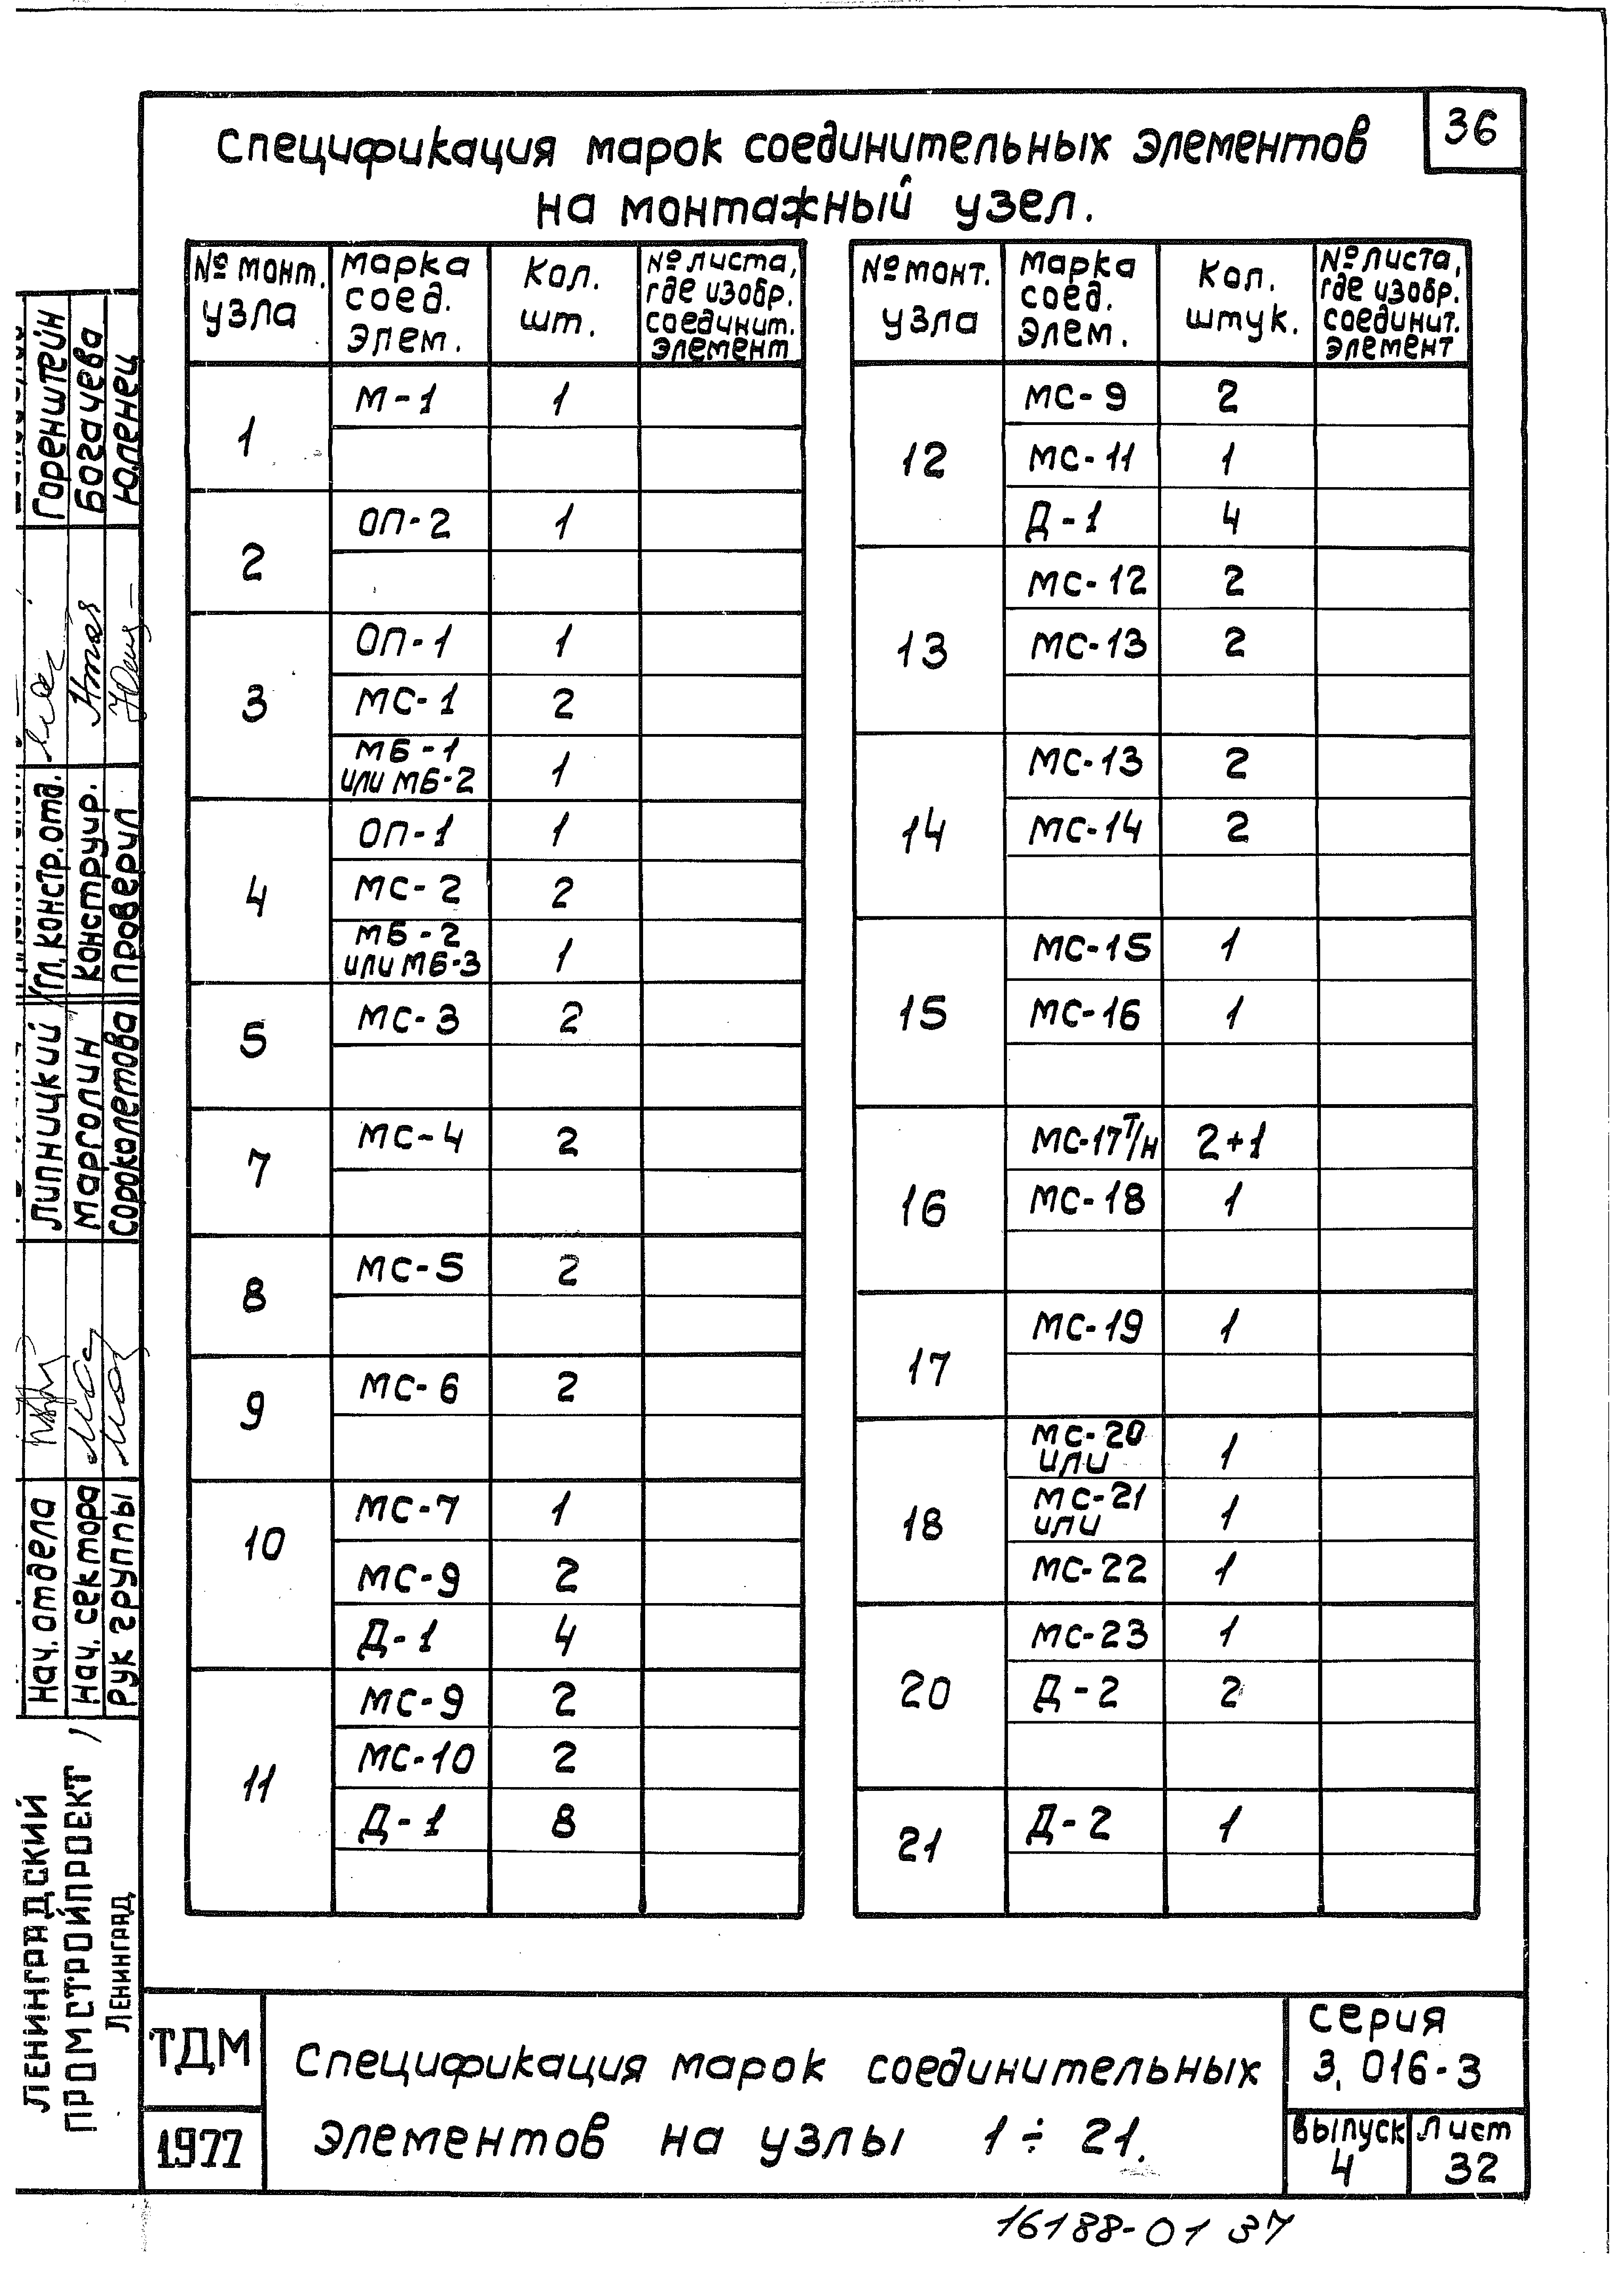 36
Спецификация марок соединительных элементов
на монтажный узел.
№ монт. узла | Марка соед. элем. | Кол. шт. | № листа, где изобр. соединит. элемент
1 | М-1 | 1
2 | ОП-2 | 1
3 | ОП-1 | 1
МС-1 | 2
МБ-1 или МБ-2 | 1
4 | ОП-1 | 1
МС-2 | 2
МБ-2 или МБ-3 | 1
5 | МС-3 | 2
7 | МС-4 | 2
8 | МС-5 | 2
9 | МС-6 | 2
10 | МС-7 | 1
МС-9 | 2
Д-1 | 4
11 | МС-9 | 2
МС-10 | 2
Д-1 | 8
№ монт. узла | Марка соед. элем. | Кол. штук. | № листа, где изобр. соединит. элемент
12 | МС-9 | 2
МС-11 | 1
Д-1 | 4
13 | МС-12 | 2
МС-13 | 2
14 | МС-13 | 2
МС-14 | 2
15 | МС-15 | 1
МС-16 | 1
16 | МС-17 т/н | 2+1
МС-18 | 1
17 | МС-19 | 1
18 | МС-20 или | 1
МС-21 или | 1
МС-22 | 1
20 | МС-23 | 1
Д-2 | 2
21 | Д-2 | 1
Горенштейн
Богачева
Юленец
Гл. констр. отд.
Конструир.
Проверил
Липницкий
Марголин
Сороколетова
Нач. отдела
Нач. сектора
Рук группы
ЛЕНИНГРАДСКИЙ
ПРОМСТРОЙПРОЕКТ
Ленинград
ТДМ
1977
Спецификация марок соединительных
элементов на узлы 1÷21.
Серия
3.016-3
Выпуск
4
Лист
32
16188-01 37